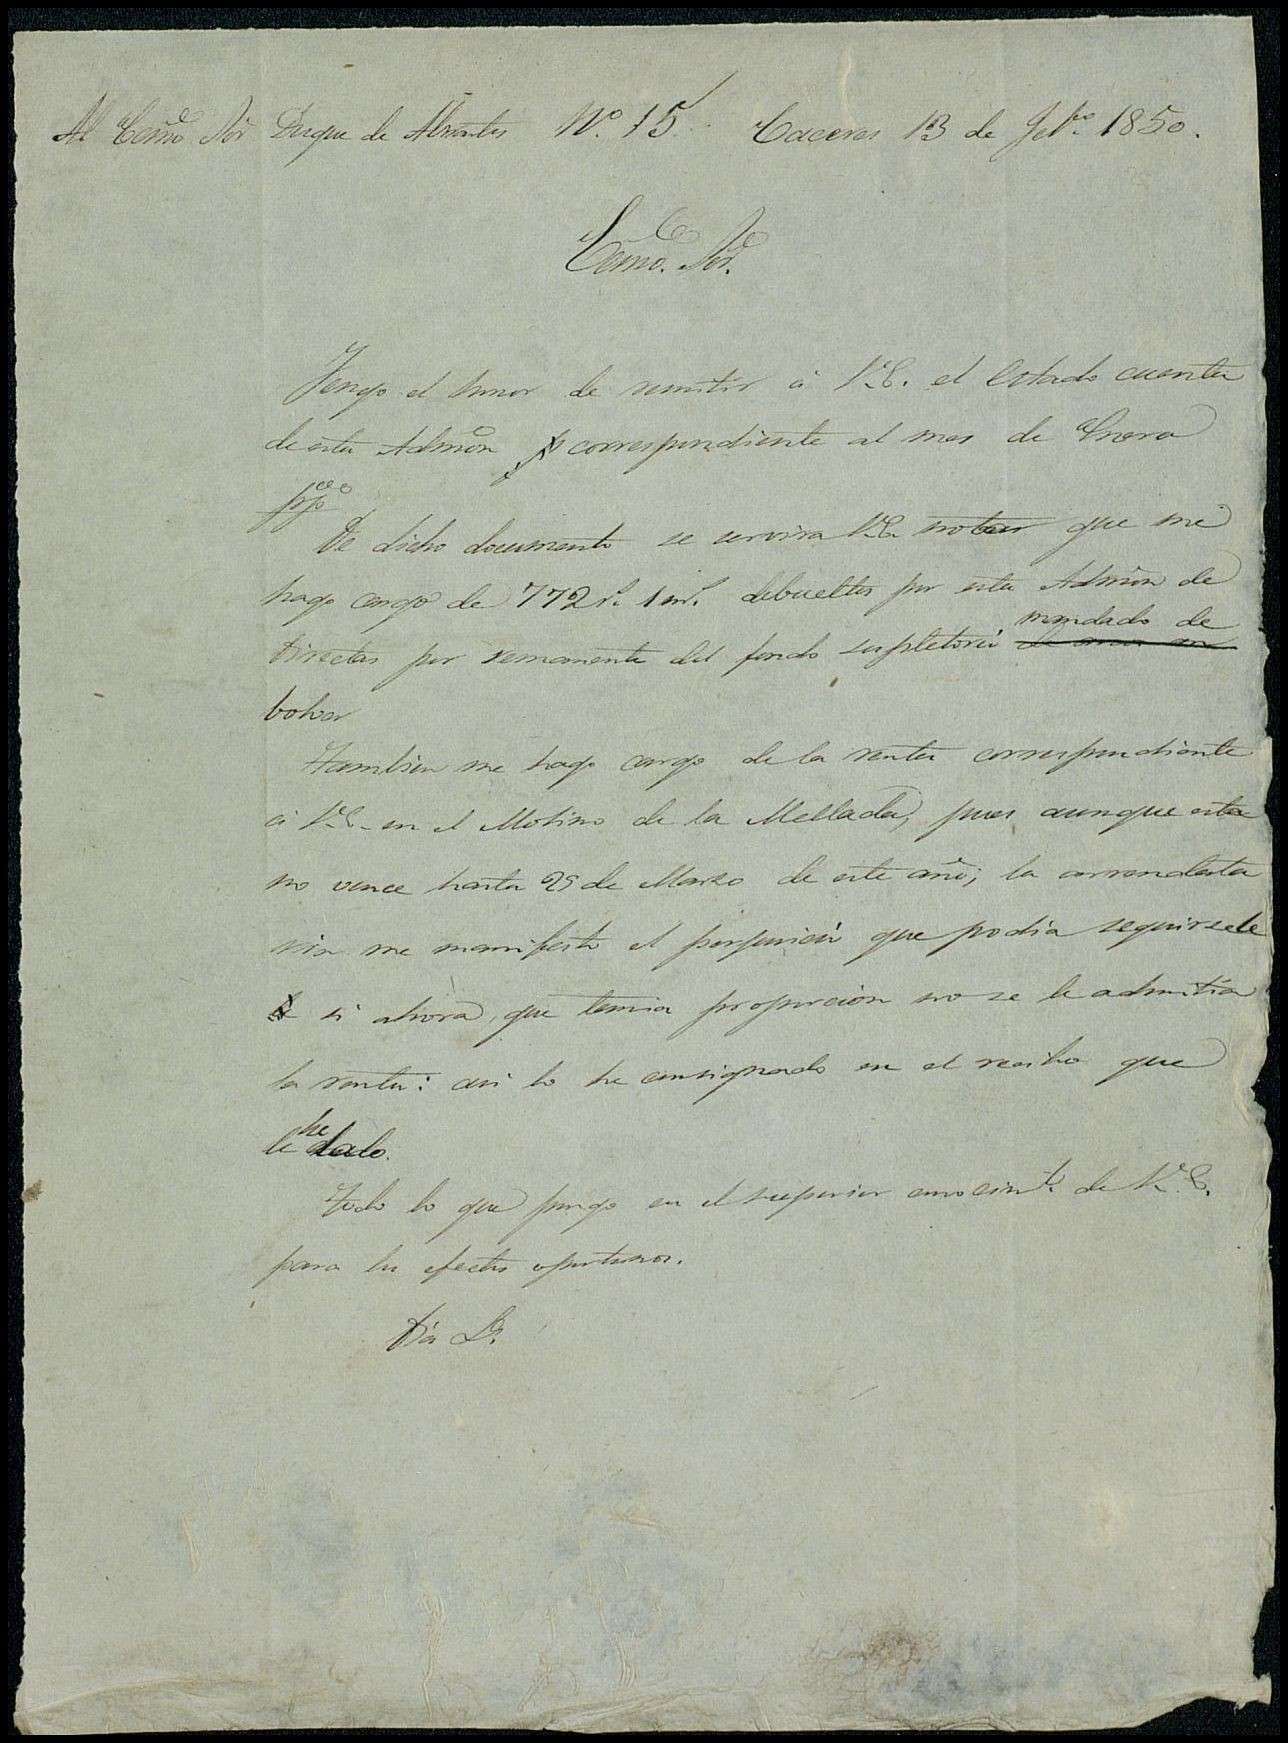 Al Exmo Sor Duque de Abrantes Nº. 15. Caceres 13 de Febº. 1850.
Exmo. Sor.
Tengo el honor de remitir á V.E. el Estado cuenta
de esta Admon correspondiente al mes de Enero
De dicho documento se servira V.E. notar que me
hago cargo de 772 rs. 1 mr. debueltos por esta Admon de
Directas por remanente del fondo supletorio mandado de
bolver
Tambien me hago cargo de la renta correspondiente
á V.E. en el Molino de la Mellada, pues aunque esta
no vence hasta 25 de Marzo de este año; la arrendata
ria me manifestó el perjuicio que podia seguirsele
si ahora, que tenia proporcion no se le admitia
la renta: asi lo he consignado en el recibo que
le he dado.
Todo lo que pongo en el superior conocimto. de V.E.
para los efectos oportunos.